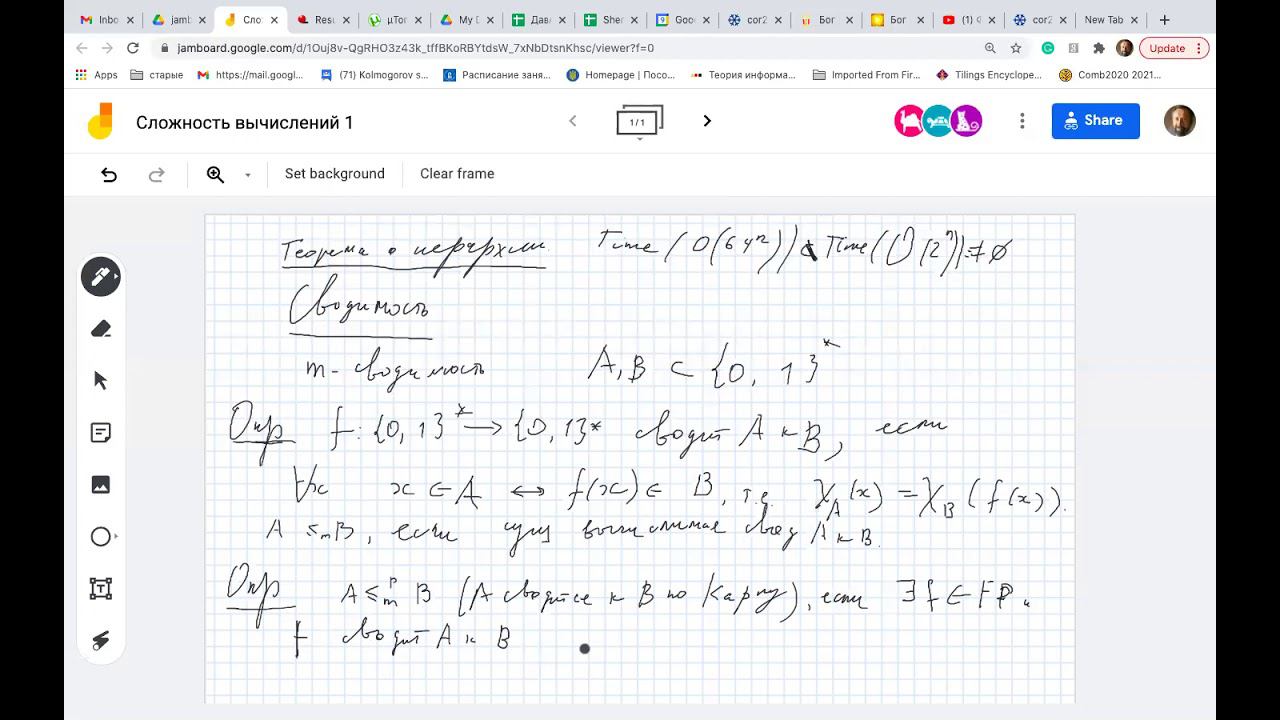 Inbo jamb Сло Resu μTor My D Дав Sher Goo cor2 Бог Бог (1) cor2 New Tab
jamboard.google.com/d/1Ouj8v-QgRHO3z43k_tffBKoRBYtdsW_7xNbDtsnKhsc/viewer?f=0 Update
Apps старые https://mail.googl... (71) Kolmogorov s... Расписание заня... Homepage | Посо... Теория информа... Imported From Fir... Tilings Encyclope... Comb2020 2021...
Сложность вычислений 1 1/1 Share
Set background Clear frame
Теорема о иерархии Time(O(64ⁿ)) \ Time(O(2ⁿ)) ≠ ∅
Сводимость
m-сводимость A, B ⊂ {0, 1}*
Опр f: {0, 1}* → {0, 1}* сводит A к B, если
∀x x ∈ A ↔ f(x) ∈ B, т.е. χ_A(x) = χ_B(f(x)).
A ≤ₘ B, если сущ вычислимая свод A к B.
Опр A ≤ₘᵖ B (A сводится к B по Карпу), если ∃ f ∈ FP.
f сводит A к B